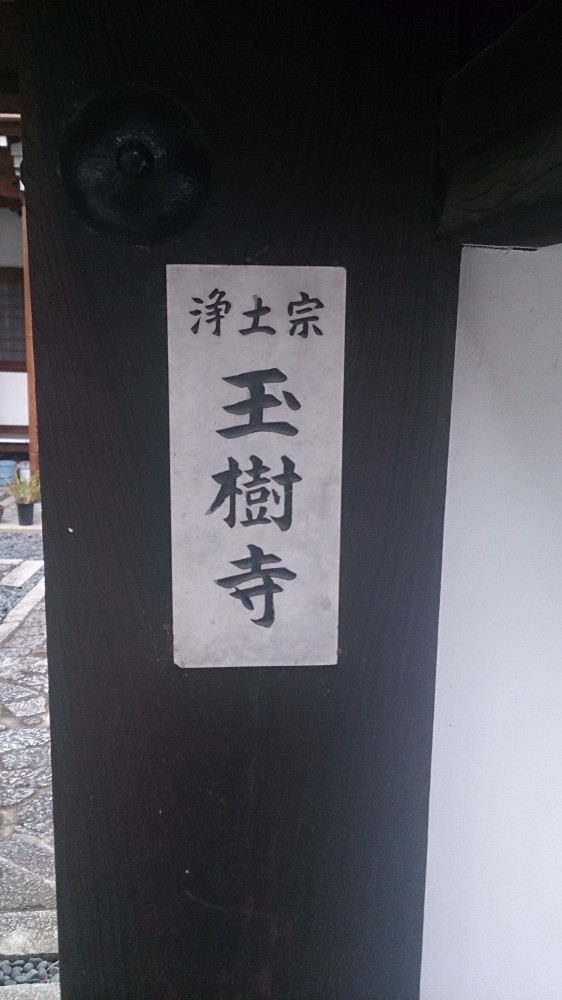 浄土宗
玉樹寺